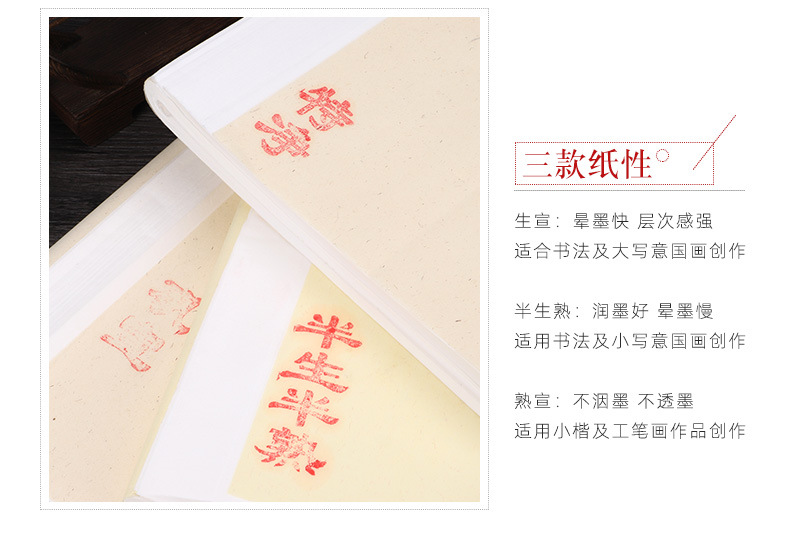 特净
半生半熟
三款纸性
生宣：晕墨快 层次感强
适合书法及大写意国画创作
半生熟：润墨好 晕墨慢
适用书法及小写意国画创作
熟宣：不洇墨 不透墨
适用小楷及工笔画作品创作